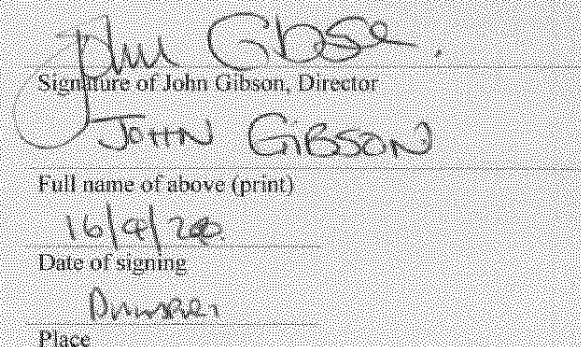 John Gibson.
Signature of John Gibson, Director
JOHN GIBSON
Full name of above (print)
Date of signing
Place